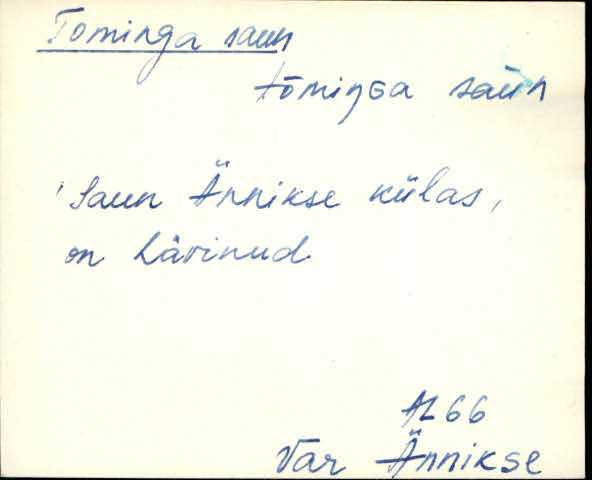 Tominga saun
tōminɢa saun
Saun Ännikse külas,
on hävinud
AL 66
Var Ännikse